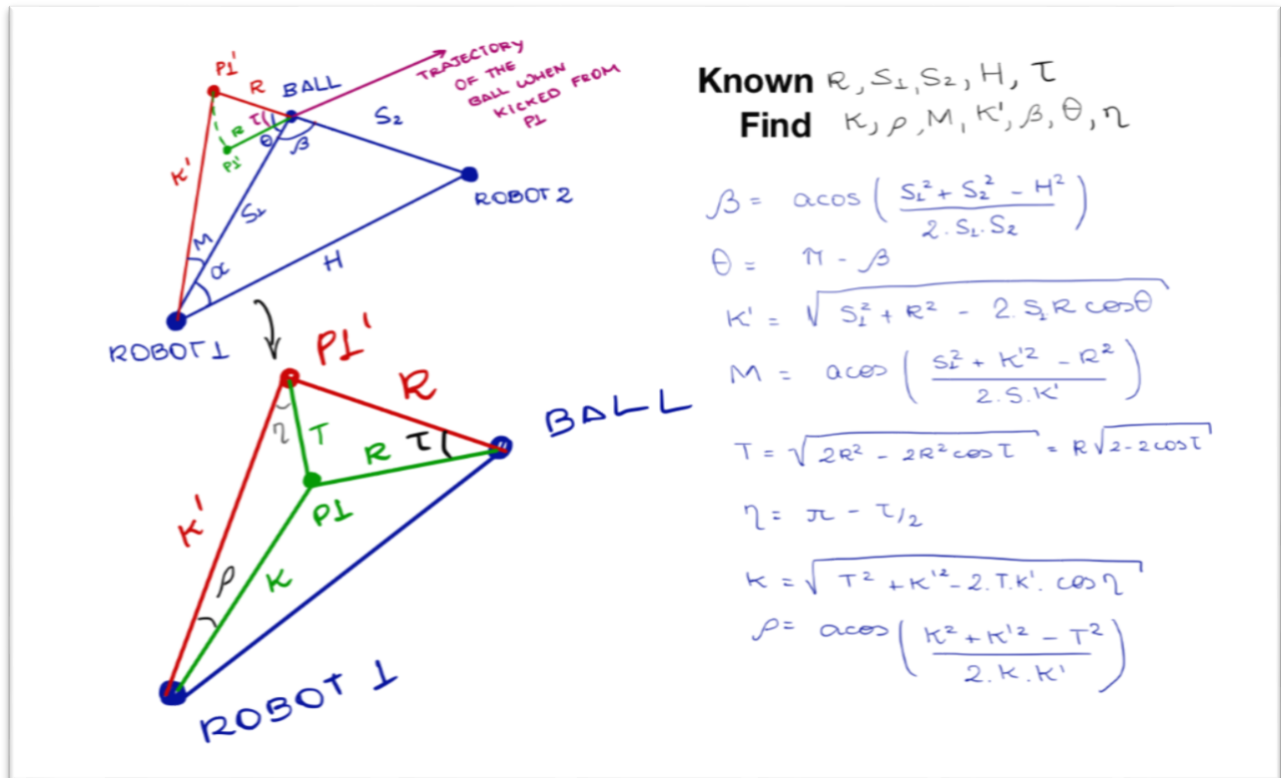 P1'
R
BALL
TRAJECTORY
OF THE
BALL WHEN
KICKED FROM
P1
τ
R
θ
β
S₂
P1'
K'
S₁
ROBOT 2
M
α
H
ROBOT 1
P1'
R
BALL
η
T
R
τ
P1
K'
ρ
K
ROBOT 1
Known R, S₁, S₂, H, τ
Find K, ρ, M, K', β, θ, η
β = acos ( (S₁² + S₂² - H²) / (2. S₁. S₂) )
θ = π - β
K' = √(S₁² + R² - 2. S₁R cosθ)
M = acos ( (S₁² + K'² - R²) / (2. S. K') )
T = √(2R² - 2R² cos τ) = R √(2-2cosτ)
η = π - τ/2
K = √(T² + K'² - 2. T. K'. cos η)
ρ = acos ( (K² + K'² - T²) / (2. K. K') )